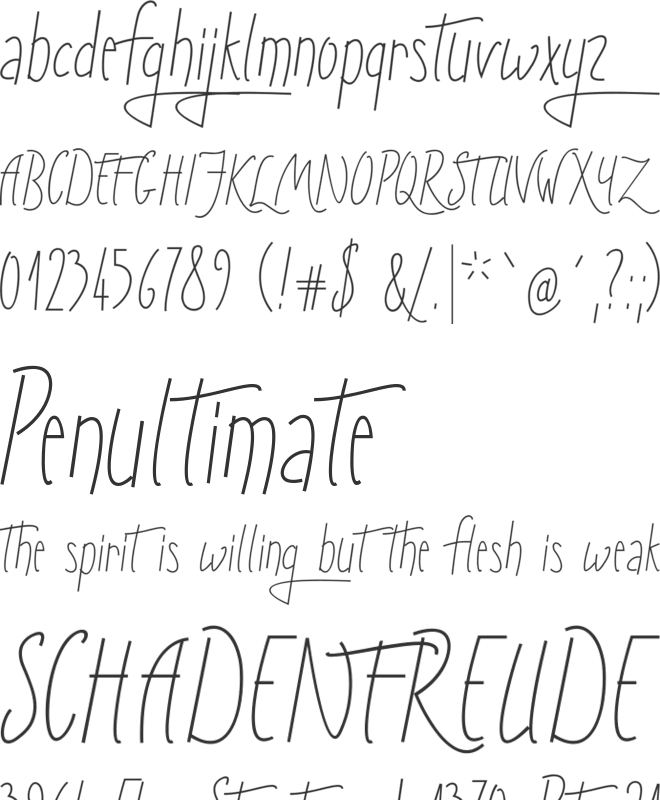 abcdefghijklmnopqrstuvwxyz
ABCDEFGHIJKLMNOPQRSTUVWXYZ
0123456789 (!#$ &/.|*`@´,?:;)
Penultimate
The spirit is willing but the flesh is weak
SCHADENFREUDE